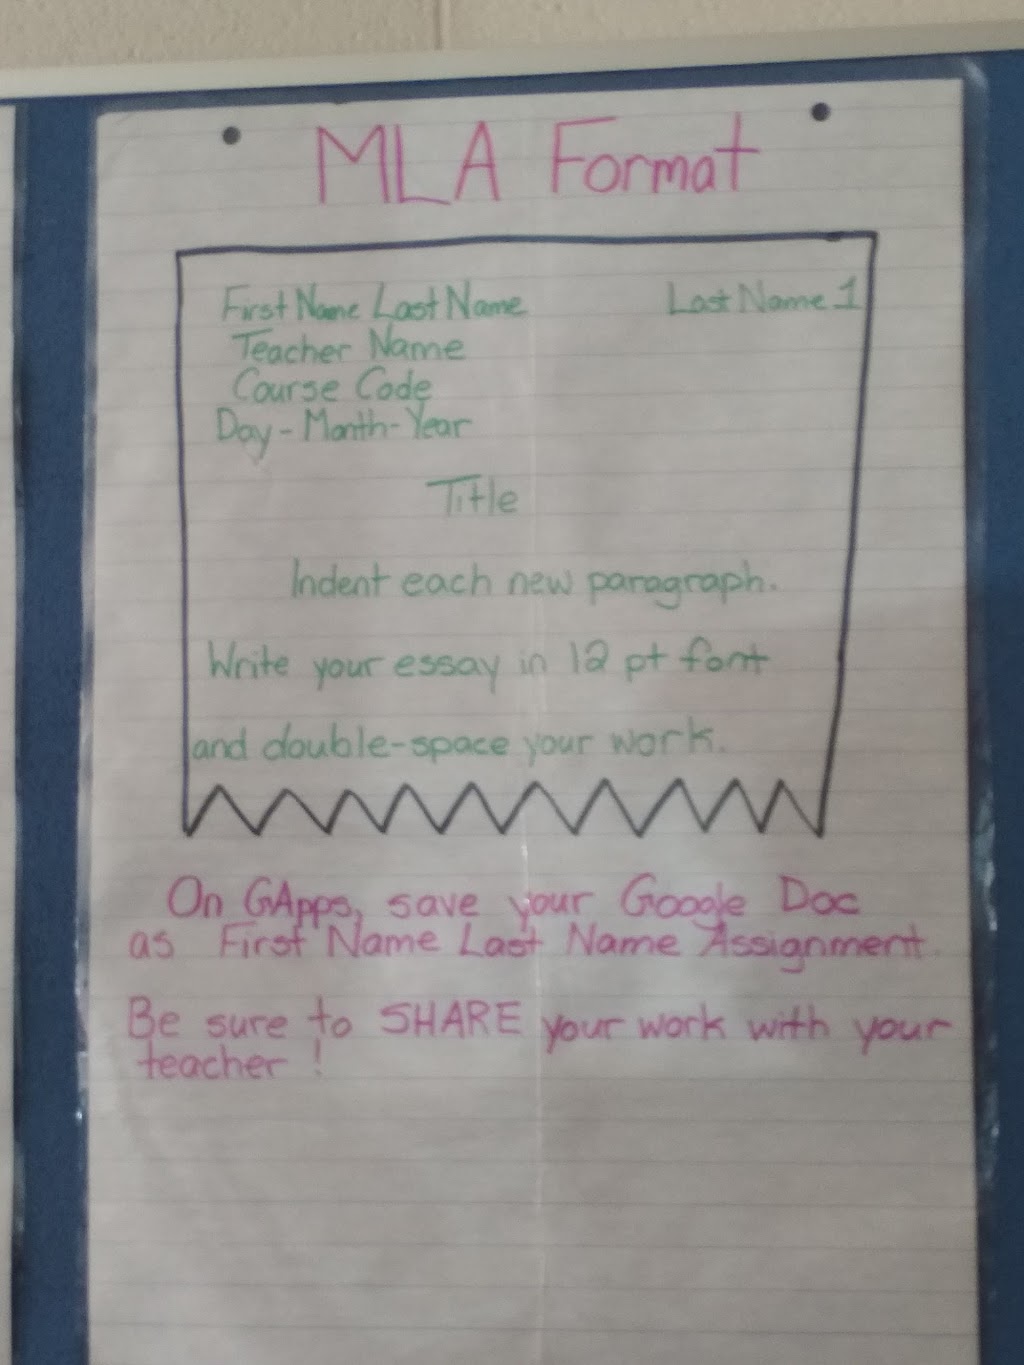 MLA Format
First Name Last Name Last Name 1
Teacher Name
Course Code
Day-Month-Year
Title
Indent each new paragraph.
Write your essay in 12 pt font
and double-space your work.
On GApps, save your Google Doc
as First Name Last Name Assignment.
Be sure to SHARE your work with your
teacher!